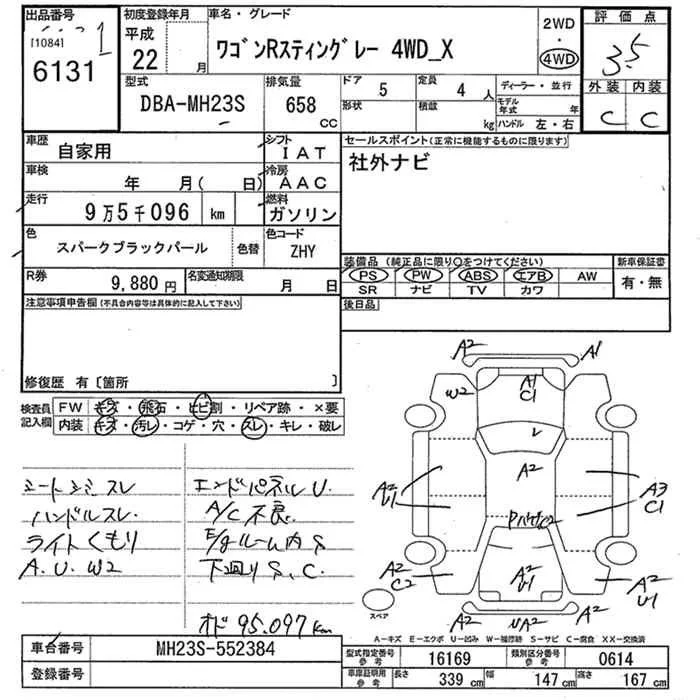 出品番号
[1084] 1
6131
初度登録年月
平成
22 月
車名・グレード
ワゴンRスティングレー 4WD_X
2WD
・
4WD
評価点
3.5
外装 内装
C C
型式
DBA-MH23S
排気量
658
cc
ドア 5
定員 4 人
形状
積載 kg
ディーラー・並行
モデル年式 年
ハンドル 左・右
車歴
自家用
シフト
IAT
車検
年 月( 日)
冷房
AAC
走行
9万5千096 km
燃料
ガソリン
色
スパークブラックパール
色替
色コード
ZHY
R券
9,880 円
名変通知期限
月 日
セールスポイント(正常に機能するものに限ります)
社外ナビ
装備品 (純正品に限り○をつけてください)
PS PW ABS エアB AW
SR ナビ TV カワ
新車保証書
有・無
後日品
注意事項申告欄(不具合内容等は具体的に記入して下さい)
修復歴 有〔箇所 〕
検査員
記入欄
FW キズ・飛石・ヒビ割・リペア跡・×要
内装 キズ・汚レ・コゲ・穴・スレ・キレ・破レ
シートシミスレ
ハンドルスレ
ライトくもり
A.U.W2
エンドパネルU.
A/C不良
E/gルーム内S
下廻りS.C.
オド 95.097km
A2 A1
W2 A1
C1
A2
A2
U1
A3
C1
A2
C2
A2
U1
A2
U1
A2
スペア
A-キズ E-エクボ U-凹み W-補修跡 S-サビ C-腐食 XX-交換済
車台番号 MH23S-552384
登録番号
型式指定番号
参考
16169
類別区分番号
参考
0614
車庫証明用
参考
長さ 339 cm
幅 147 cm
高さ 167 cm